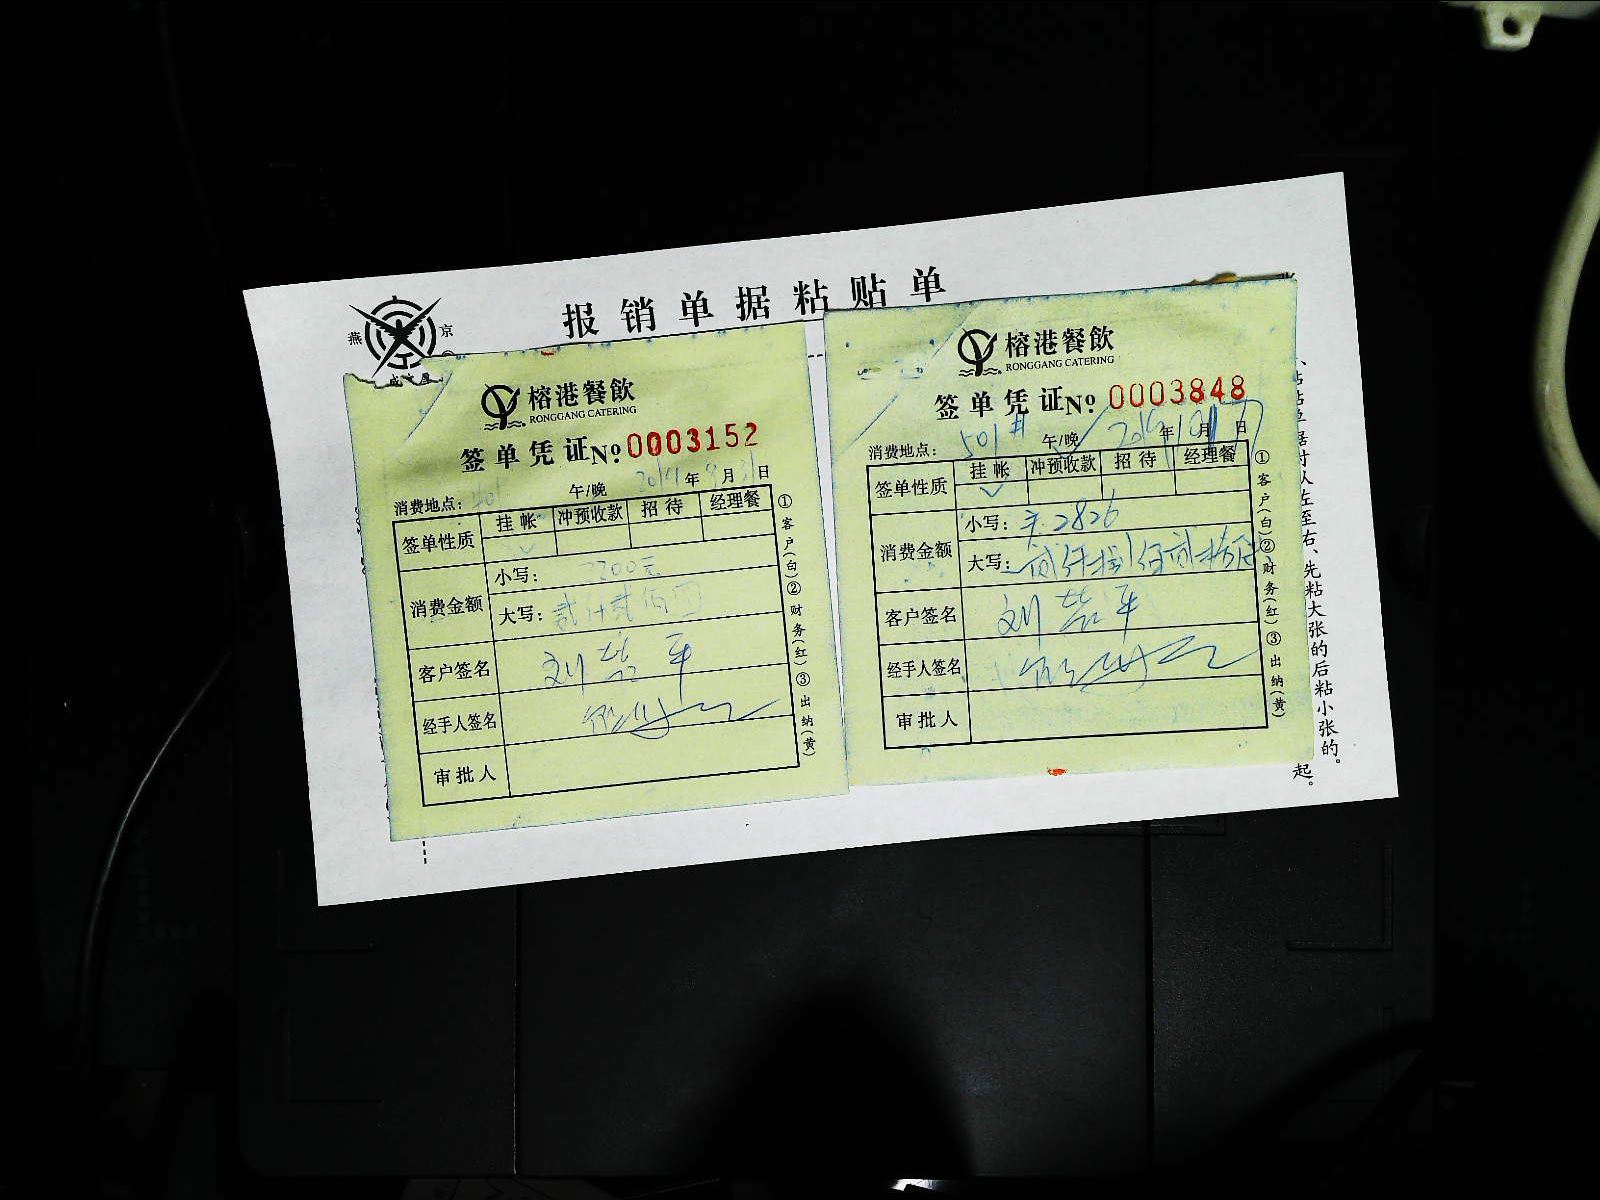 报销单据粘贴单
燕 京
榕港餐飲
RONGGANG CATERING
签单凭证 No. 0003152
消费地点: 午/晚 年 月 日
签单性质 挂帐 冲预收款 招待 经理餐
消费金额
小写: 2200元
大写: 贰仟贰佰圆
客户签名 刘 平
经手人签名
审批人
①客户(白)②财务(红)③出纳(黄)
榕港餐飲
RONGGANG CATERING
签单凭证 No. 0003848
消费地点: 501# 午/晚 年 月 日
签单性质 挂帐 冲预收款 招待 经理餐
消费金额
小写: 2826
大写:
客户签名 刘 平
经手人签名
审批人
①客户(白)②财务(红)③出纳(黄)
从左至右、先粘大张的后粘小张的。
起。